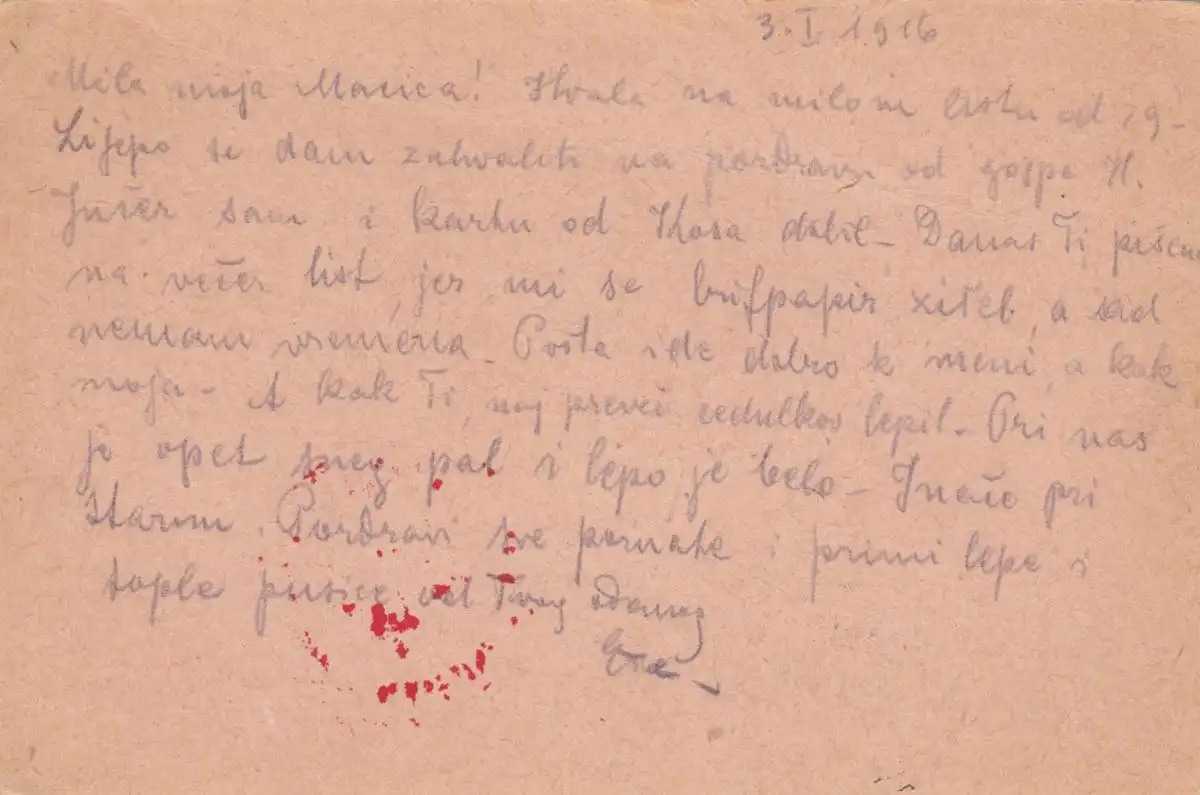 3. I. 1916
Mila moja Macica! Hvala na milom listu od 29-
Lijepo se dam zahvaliti na pozdravu od gospe H.
Jučer sam i kartu od Kosa dobil - Danas Ti pišem
na večer list, jer mi se brifpapir , a sad
nemam vremena - Pošta ide dobro k meni, a kak
moja - A kak Ti, naj preveč cedulkos lepil - Pri nas
je opet sneg pal i lepo je belo - Inače pri
starom. Pozdravi sve poznate i primi lepe i
tople pusice od Tvog odanog